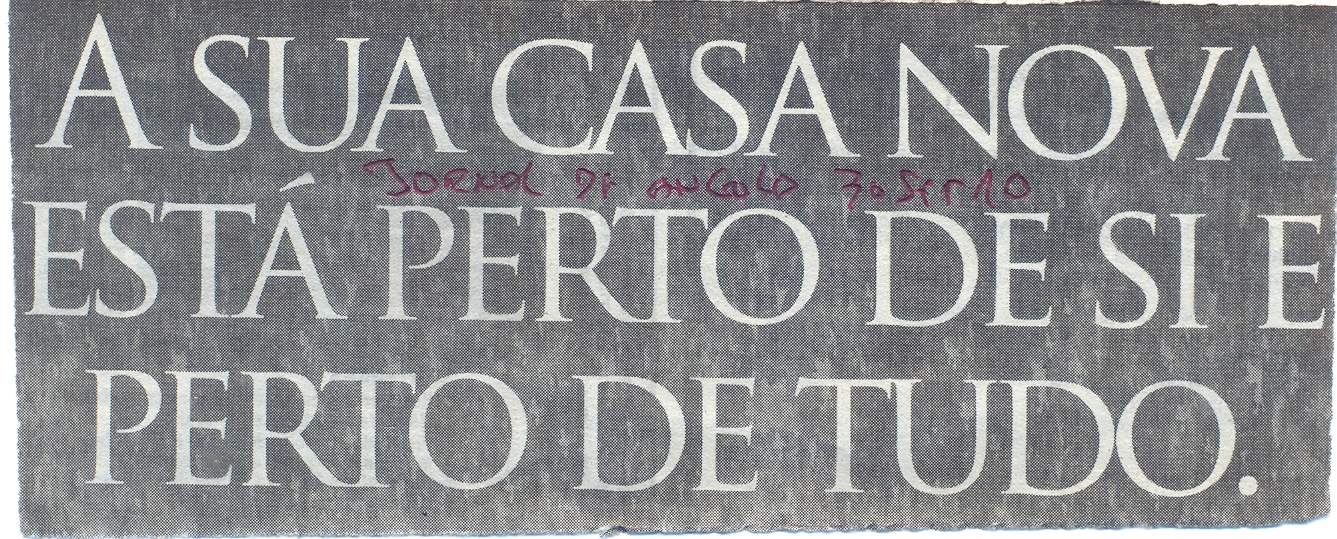 A SUA CASA NOVA
JORNAL DE ANGOLA 30 SET 10
ESTÁ PERTO DE SI E
PERTO DE TUDO.